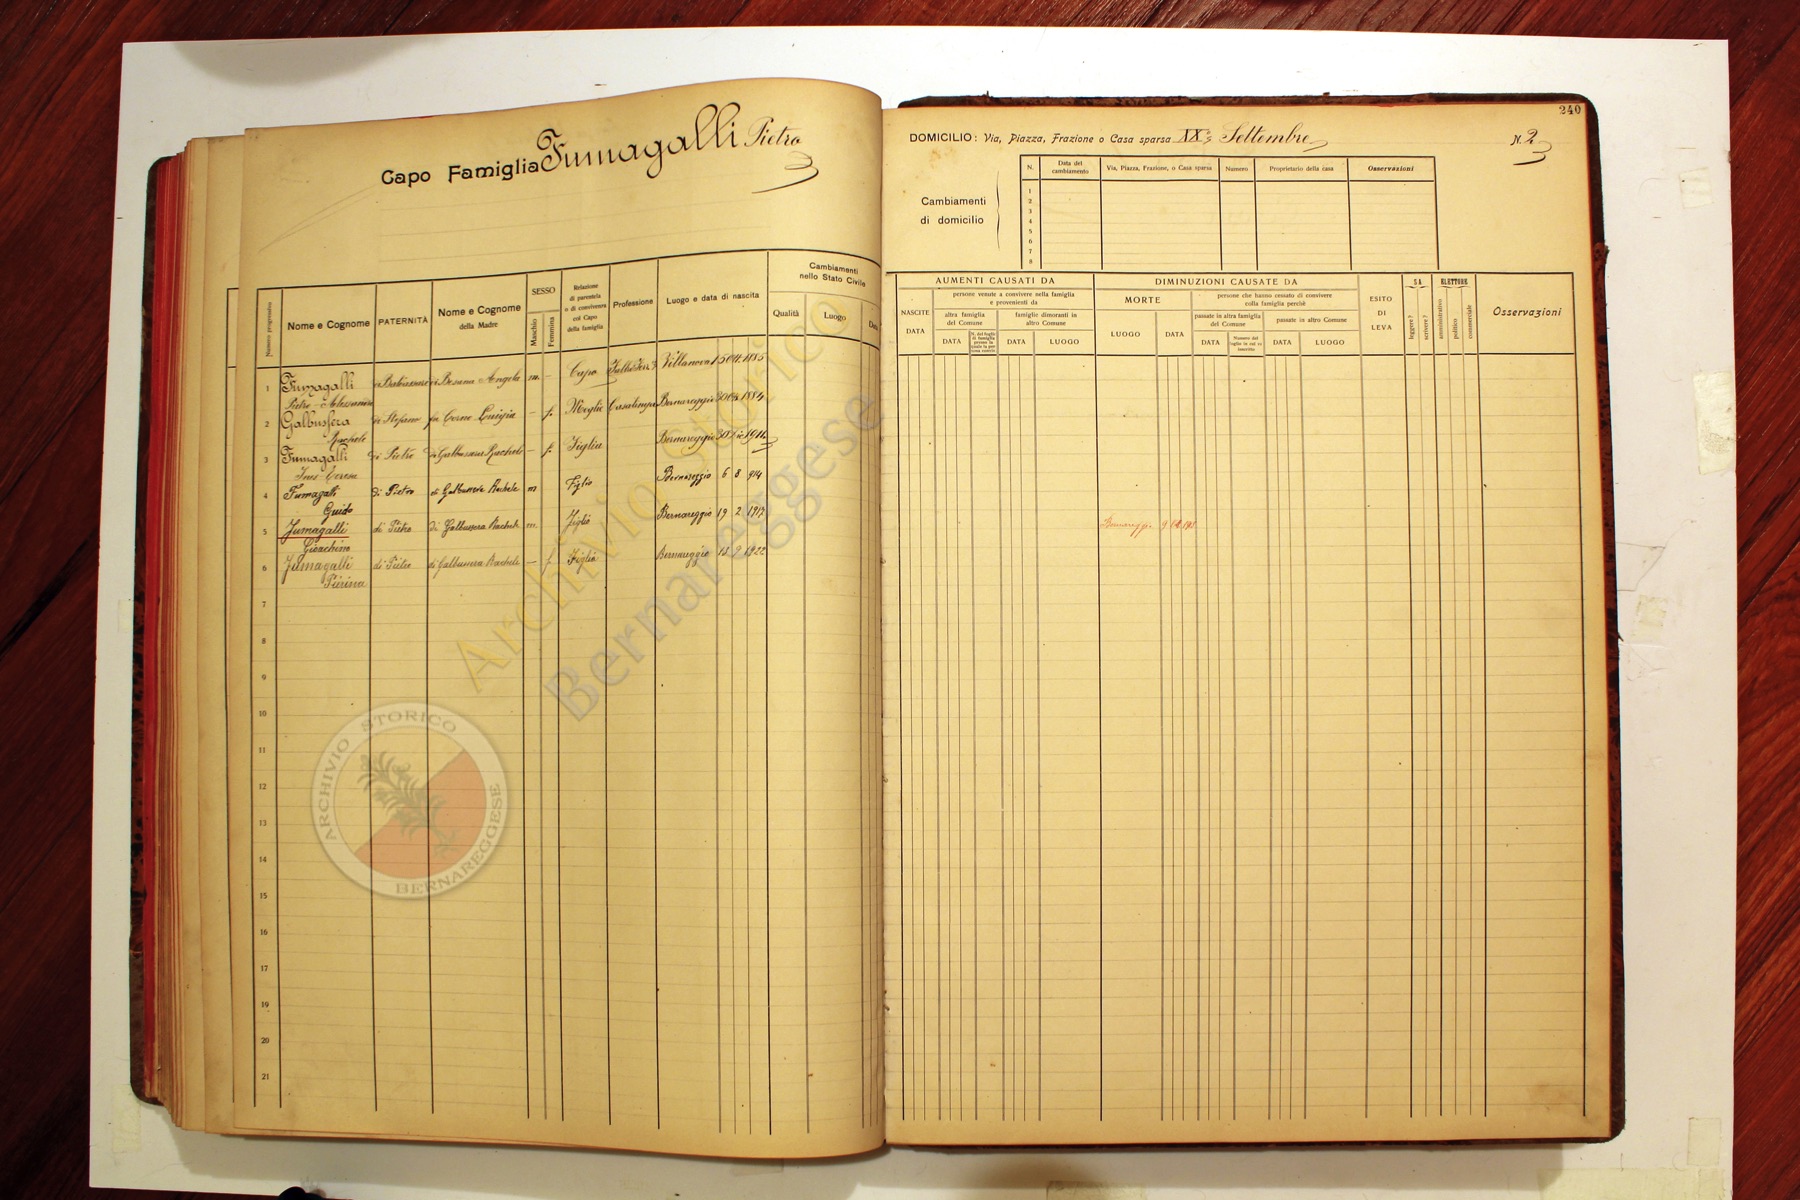 Capo Famiglia Fumagalli Pietro
Numero progressivo
Nome e Cognome
PATERNITÀ
Nome e Cognome
della Madre
SESSO
Maschio
Femmina
Relazione
di parentela
o di convivenza
col Capo
della famiglia
Professione
Luogo e data di nascita
Cambiamenti
nello Stato Civile
Qualità
Luogo
Data
1 Fumagalli di Baldassare di Besana Angela m. - Capo Villanova 15 Ott. 1885
Pietro - Alessandro
2 Galbussera di Stefano fu Corno Luigia - f. Moglie Casalinga Bernareggio 1884
Rachele
3 Fumagalli di Pietro di Galbussera Rachele - f. Figlia Bernareggio 1911
Ines Teresa
4 Fumagalli di Pietro di Galbussera Rachele m Figlio Bernareggio 6 8 914
Guido
5 Fumagalli di Pietro di Galbussera Rachele m. Figlio Bernareggio 19 2 1917
Gioachino
6 Fumagalli di Pietro di Galbussera Rachele - f Figlia Bernareggio 18 9 1922
Pierina
7
8
9
10
11
12
13
14
15
16
17
19
20
21
240
DOMICILIO: Via, Piazza, Frazione o Casa sparsa XX Settembre N. 2
Cambiamenti
di domicilio
N.
Data del
cambiamento
Via, Piazza, Frazione, o Casa sparsa
Numero
Proprietario della casa
Osservazioni
1
2
3
4
5
6
7
8
AUMENTI CAUSATI DA
NASCITE
DATA
persone venute a convivere nella famiglia
e provenienti da
altra famiglia
del Comune
DATA
famiglie dimoranti in
altro Comune
DATA
LUOGO
DIMINUZIONI CAUSATE DA
MORTE
LUOGO
DATA
persone che hanno cessato di convivere
colla famiglia perchè
passate in altra famiglia
del Comune
DATA
passate in altro Comune
DATA
LUOGO
ESITO
DI
LEVA
SA
leggere?
scrivere?
ELETTORE
amministrativo
politico
commerciale
Osservazioni
Bernareggio
Archivio Storico
Bernareggese
ARCHIVIO STORICO
BERNAREGGESE